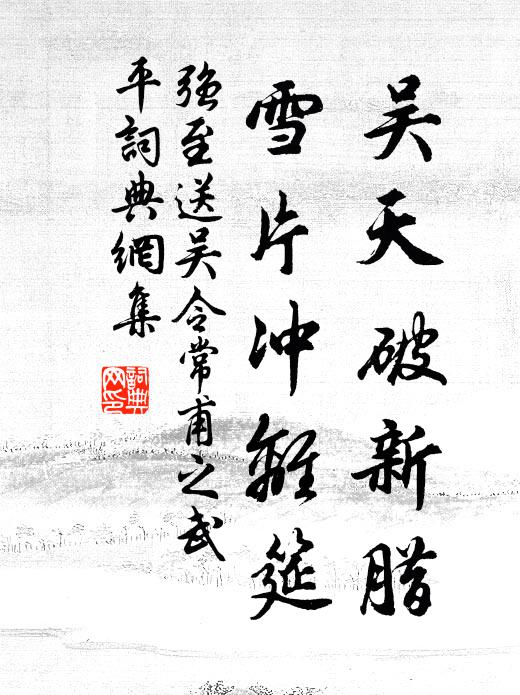 吴天破新腊
雪片冲離筵
强至送吴令常甫之武
平詞典網集
詞典
网印